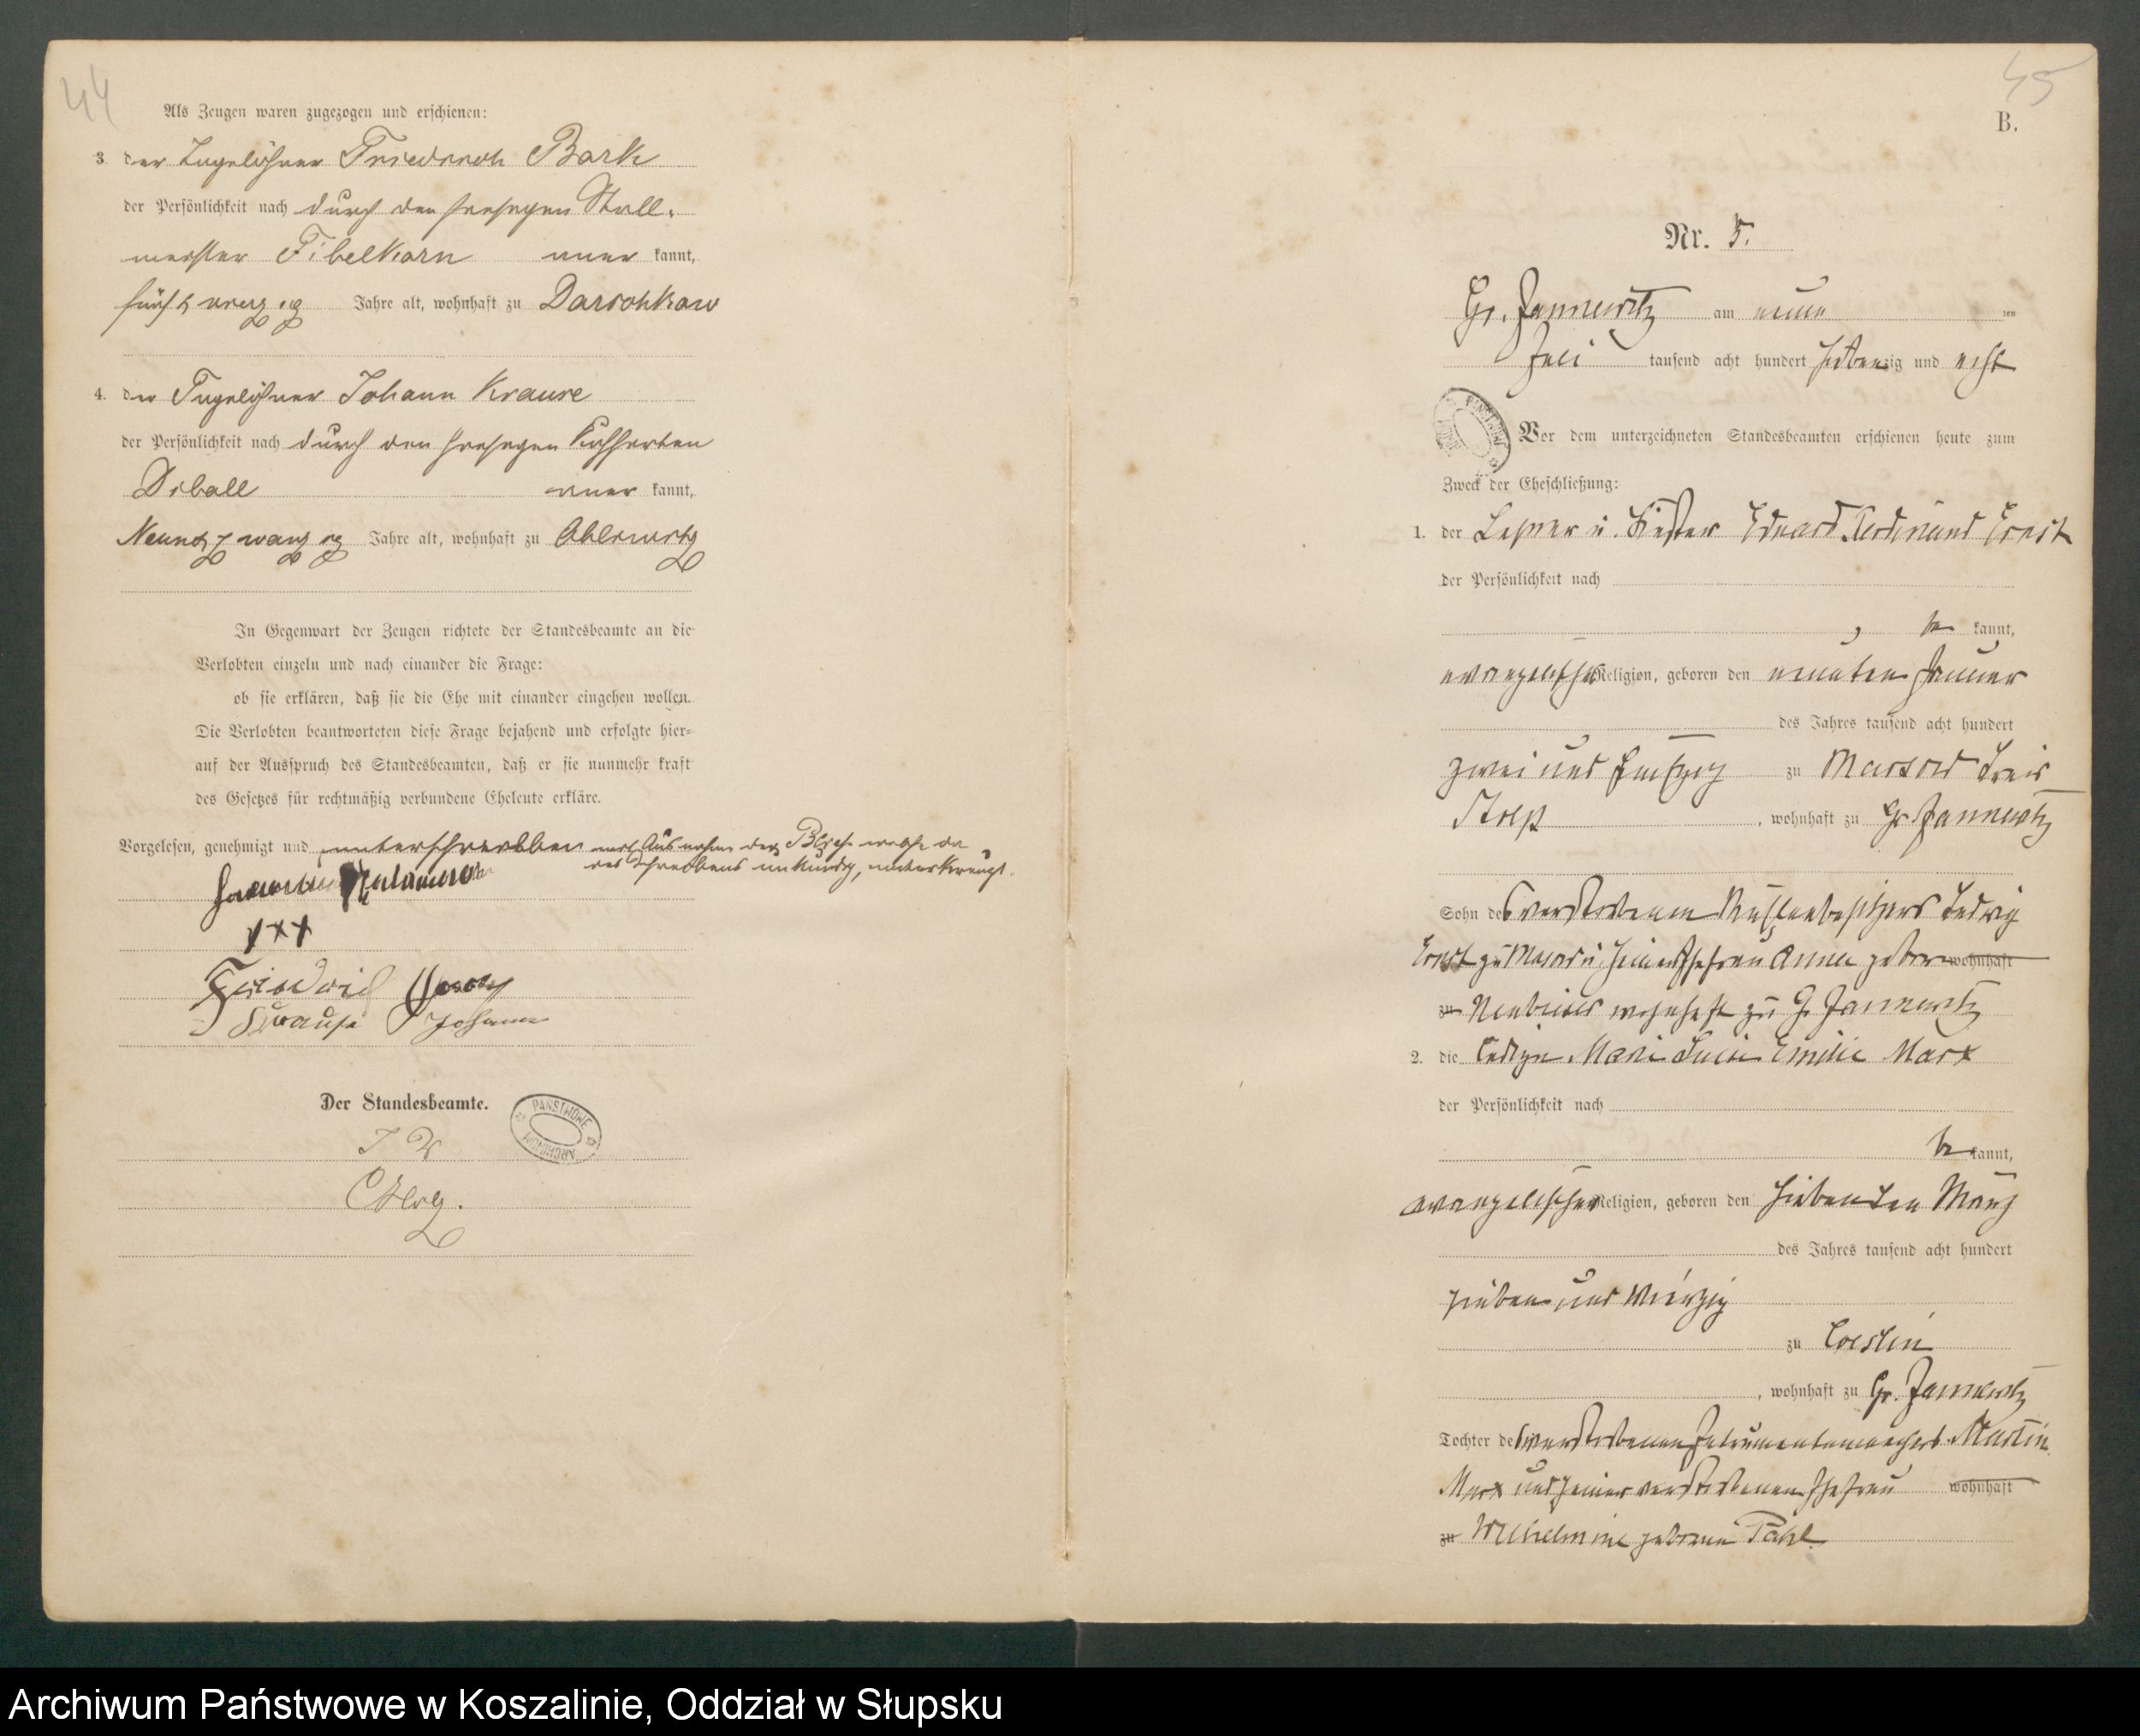 44
Als Zeugen waren zugezogen und erschienen:
3. der Tagelöhner Friedrich Bark
der Persönlichkeit nach durch den hiesigen Stall-
meister Fibelkorn aner kannt,
fünf u vierzig Jahre alt, wohnhaft zu Darsohkow
4. der Tagelöhner Johann Krause
der Persönlichkeit nach durch den hiesigen Kuhhirten
Diball aner kannt,
Neunundzwanzig Jahre alt, wohnhaft zu
In Gegenwart der Zeugen richtete der Standesbeamte an die
Verlobten einzeln und nach einander die Frage:
ob sie erklären, daß sie die Ehe mit einander eingehen wollen.
Die Verlobten beantworteten diese Frage bejahend und erfolgte hier-
auf der Ausspruch des Standesbeamten, daß er sie nunmehr kraft
des Gesetzes für rechtmäßig verbundene Eheleute erkläre.
Vorgelesen, genehmigt und unterschrieben mit Ausnahme der welche da
des Schreibens unkundig, unterkreuzt.
+++
Friedrich
Krause Johann
Der Standesbeamte.
PAŃSTWOWE ARCHIWUM
45
B.
Nr. 5.
Gr. Jannewitz am neun ten
Juli tausend acht hundert siebenzig und acht
Vor dem unterzeichneten Standesbeamten erschienen heute zum
Zweck der Eheschließung:
1. der Lehrer u. Küster Eduard Ferdinand Ernst
der Persönlichkeit nach
be kannt,
evangelischer Religion, geboren den neunten Januar
des Jahres tausend acht hundert
zwei und fünfzig zu Massow Kreis
Stolp, wohnhaft zu Gr. Jannewitz
Sohn des verstorbenen Mühlenbesitzers Ludwig
Ernst zu Massow u. seiner Ehefrau Anna geborne wohnhaft
zu wohnhaft zu Gr. Jannewitz
2. die ledige Marie Emilie Marx
der Persönlichkeit nach
be kannt,
evangelischer Religion, geboren den siebenten März
des Jahres tausend acht hundert
sieben und vierzig
zu Coeslin
, wohnhaft zu Gr. Jannewitz
Tochter des verstorbenen Instrumentenmachers Martin
Marx und seiner verstorbenen Ehefrau wohnhaft
zu Wilhelmine geborene Pahl
Archiwum Państwowe w Koszalinie, Oddział w Słupsku